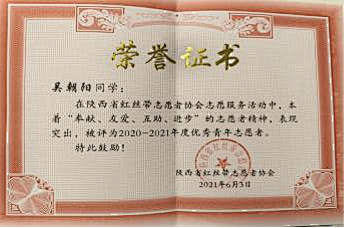 荣誉证书
吴朝阳同学：
在陕西省红丝带志愿者协会志愿服务活动中，本
着“奉献、友爱、互助、进步”的志愿者精神，表现
突出，被评为2020-2021年度优秀青年志愿者。
特此鼓励！
陕西省红丝带志愿者协会
2021年6月3日